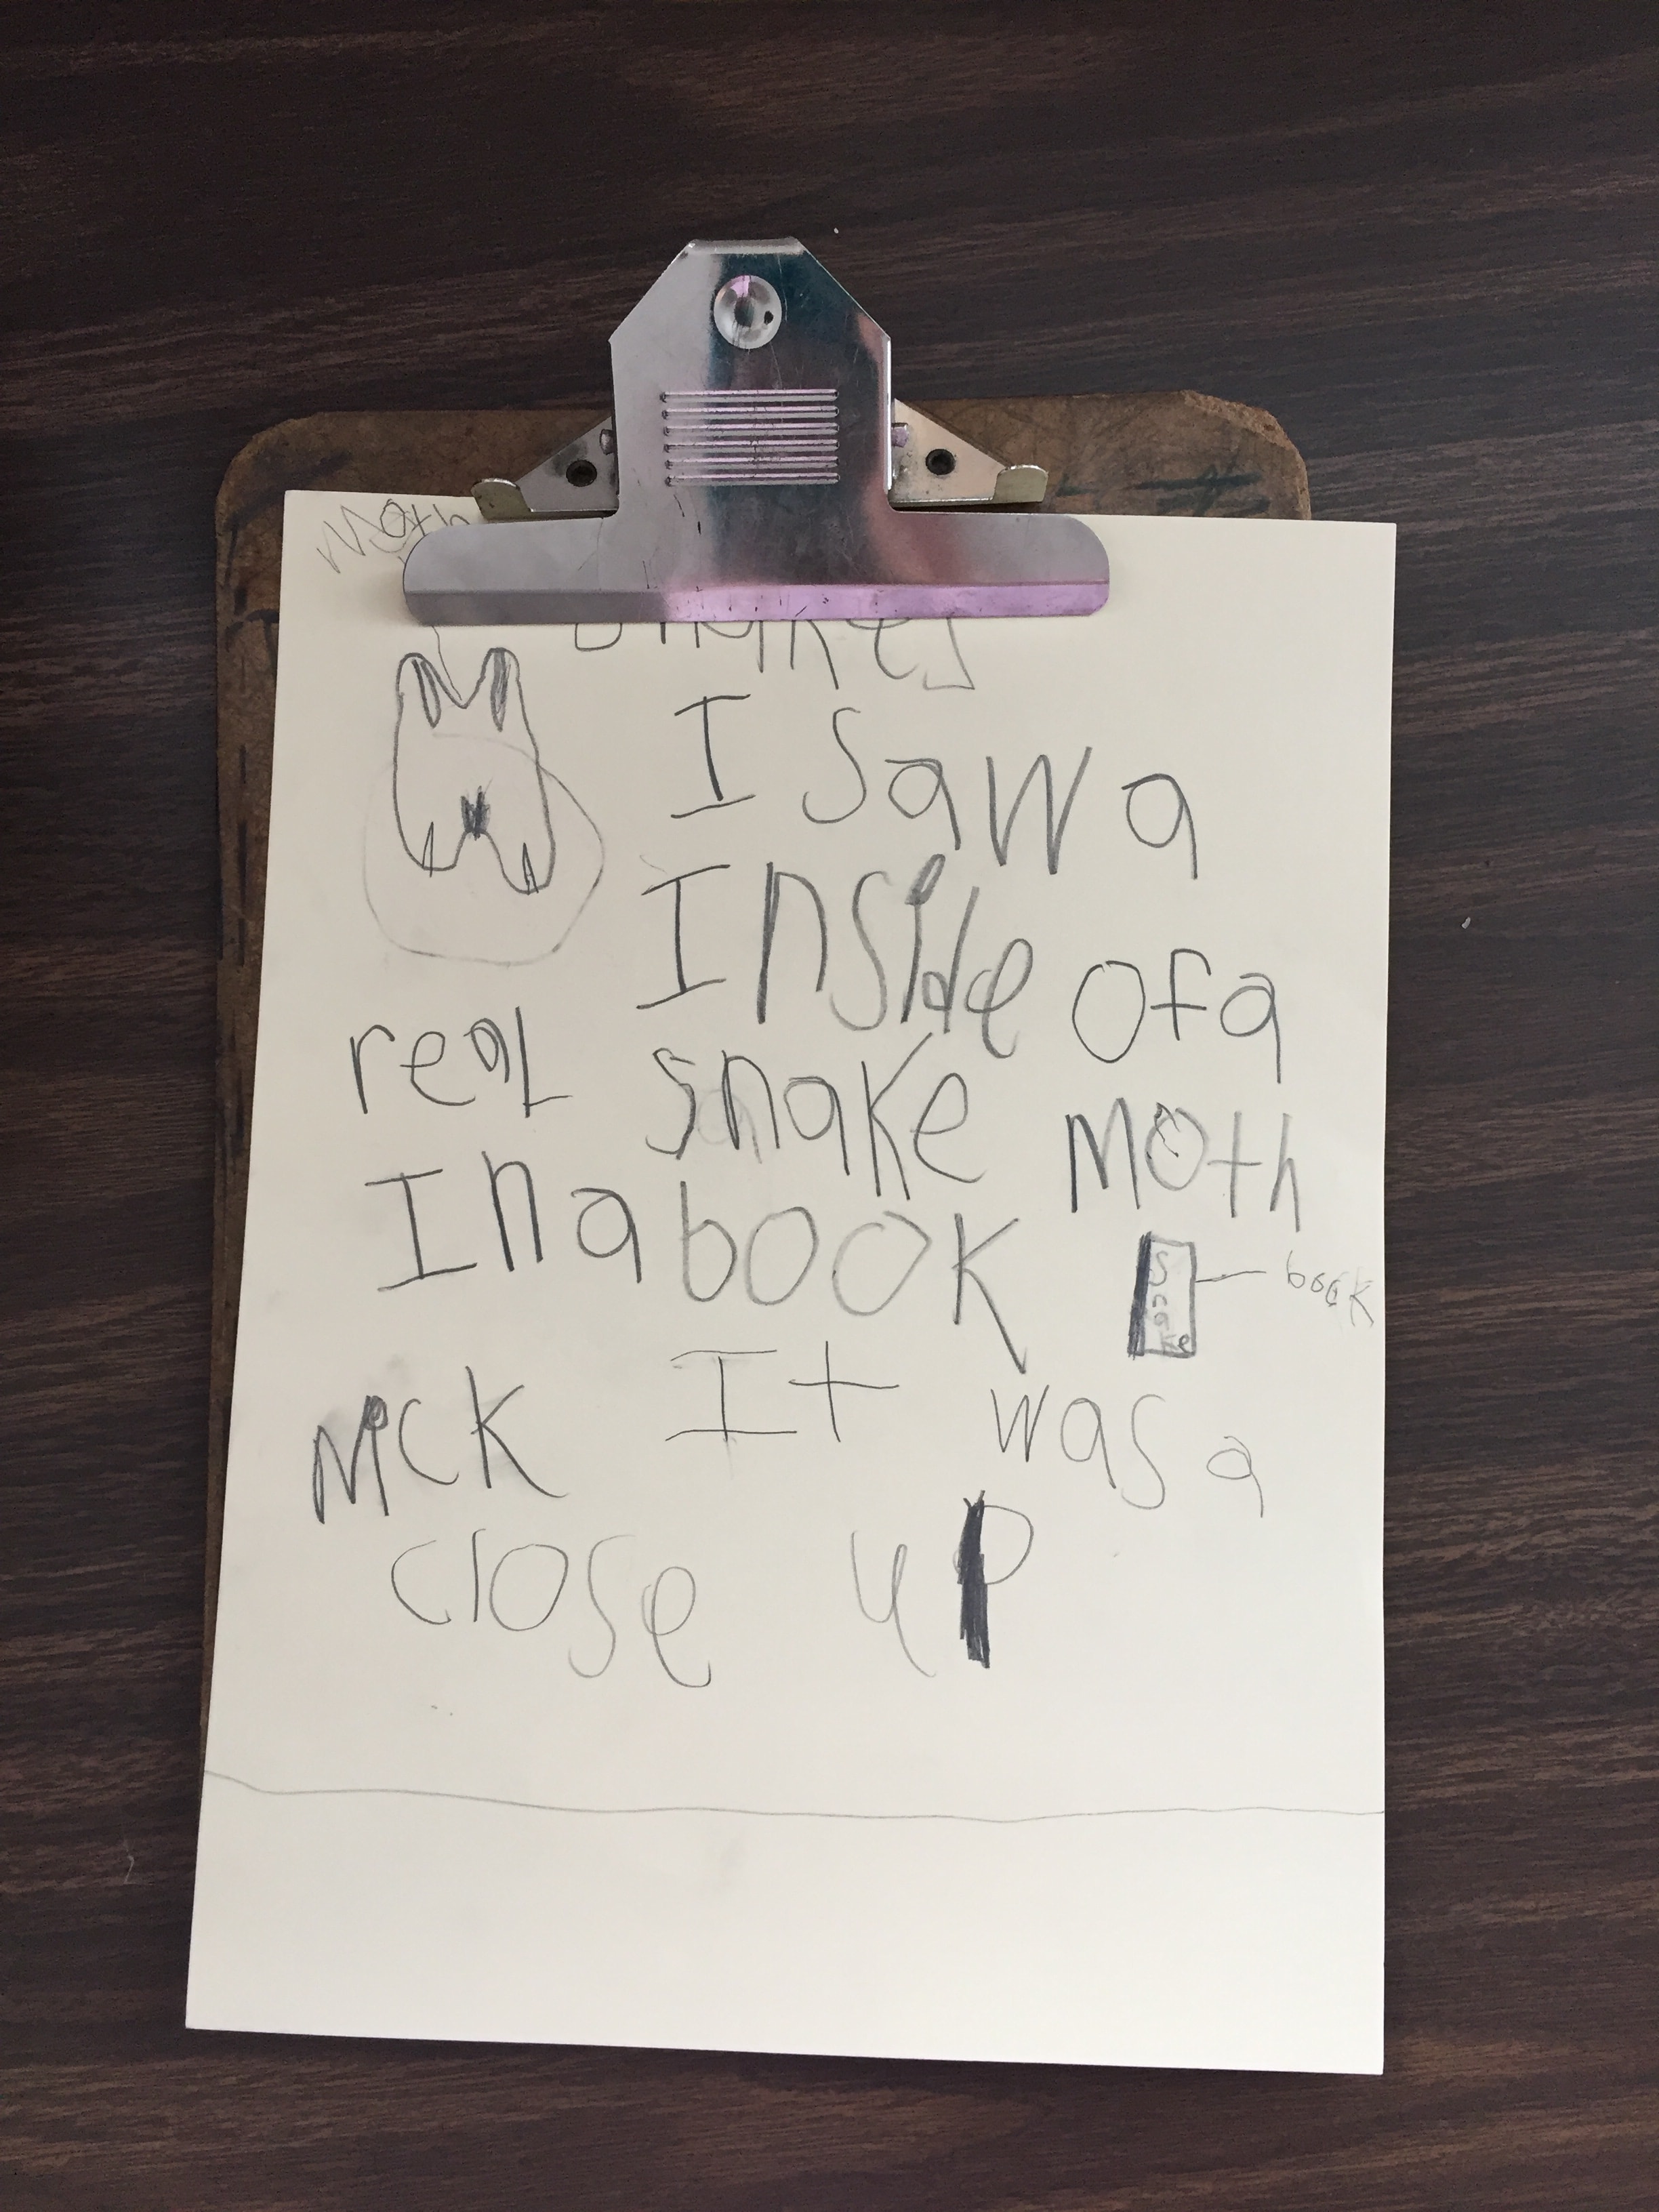 Moth
snakes
I saw a
Inside of a
real snake Moth
In a book
book
Nick It was a
close up